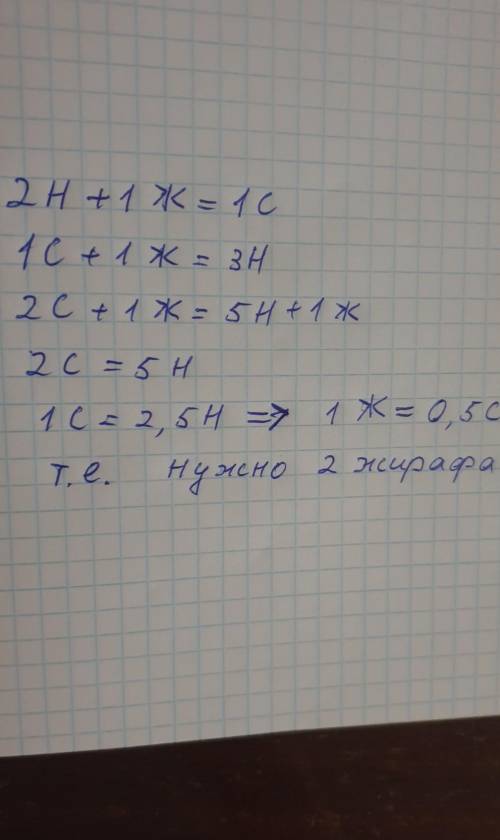 2Н + 1Ж = 1С
1С + 1Ж = 3Н
2С + 1Ж = 5Н + 1Ж
2С = 5Н
1С = 2,5Н => 1Ж = 0,5С
т.е. нужно 2 жирафа